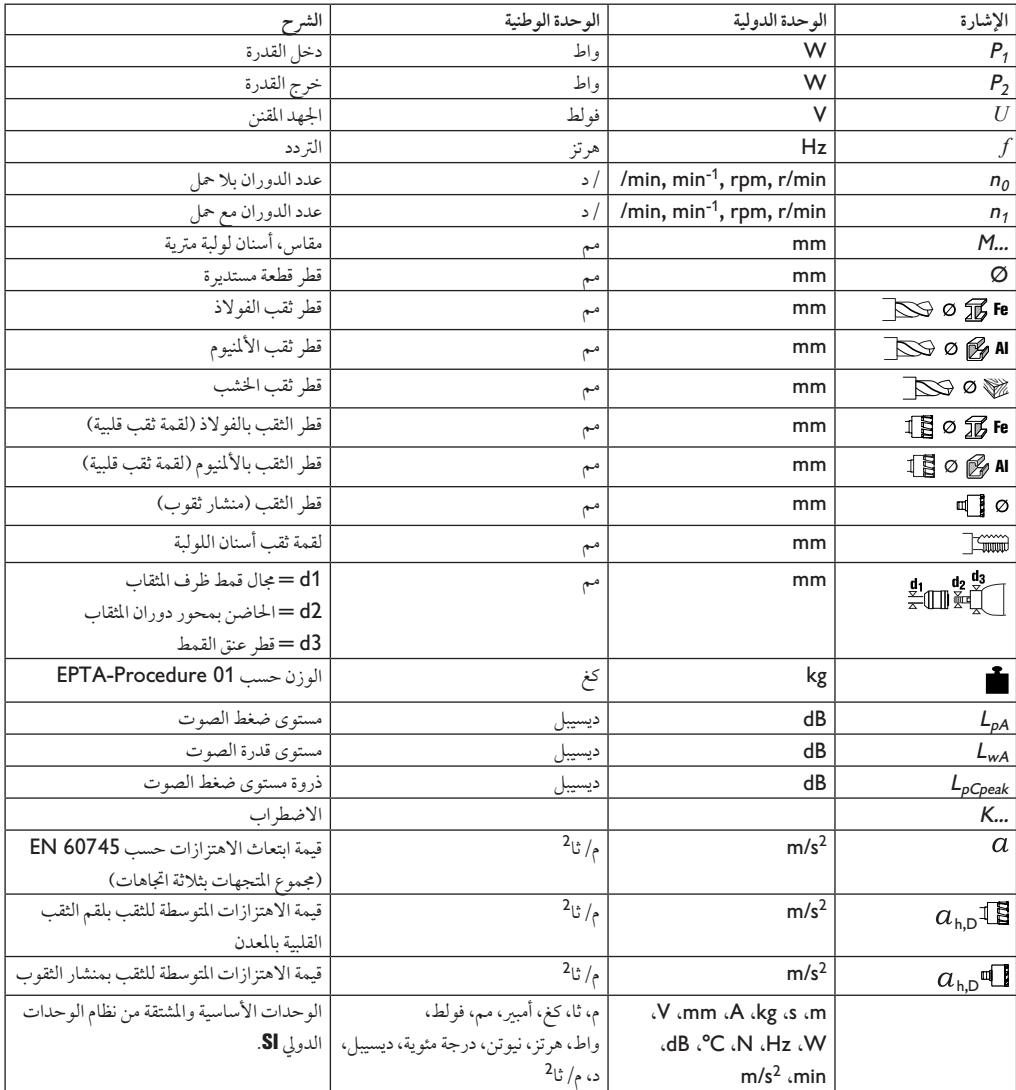 الإشارة الوحدة الدولية الوحدة الوطنية الشرح
P1 W واط دخل القدرة
P2 W واط خرج القدرة
U V فولط الجهد المقنن
f Hz هرتز التردد
n0 /min, min-1, rpm, r/min / د عدد الدوران بلا حمل
n1 /min, min-1, rpm, r/min / د عدد الدوران مع حمل
M... mm مم مقاس، أسنان لولبة مترية
Ø mm مم قطر قطعة مستديرة
Fe Ø mm مم قطر ثقب الفولاذ
Al Ø mm مم قطر ثقب الألمنيوم
Ø mm مم قطر ثقب الخشب
Fe Ø mm مم قطر الثقب بالفولاذ (لقمة ثقب قلبية)
Al Ø mm مم قطر الثقب بالألمنيوم (لقمة ثقب قلبية)
Ø mm مم قطر الثقب (منشار ثقوب)
mm مم لقمة ثقب أسنان اللولبة
d1 d2 d3 mm مم d1 = مجال قمط ظرف المثقاب
d2 = الحاضن بمحور دوران المثقاب
d3 = قطر عنق القمط
kg كغ الوزن حسب EPTA-Procedure 01
LpA dB ديسيبل مستوى ضغط الصوت
LwA dB ديسيبل مستوى قدرة الصوت
LpCpeak dB ديسيبل ذروة مستوى ضغط الصوت
K... الاضطراب
a m/s2 م/ ثا2 قيمة ابتعاث الاهتزازات حسب EN 60745
(مجموع المتجهات بثلاثة اتجاهات)
ah,D m/s2 م/ ثا2 قيمة الاهتزازات المتوسطة للثقب بلقم الثقب
القلبية بالمعدن
ah,D m/s2 م/ ثا2 قيمة الاهتزازات المتوسطة للثقب بمنشار الثقوب
m، s، kg، A، mm، V، م، ثا، كغ، أمبير، مم، فولط، الوحدات الأساسية والمشتقة من نظام الوحدات
W، Hz، N، °C، dB، واط، هرتز، نيوتن، درجة مئوية، ديسيبل، الدولي SI.
min، m/s2 د، م/ ثا2